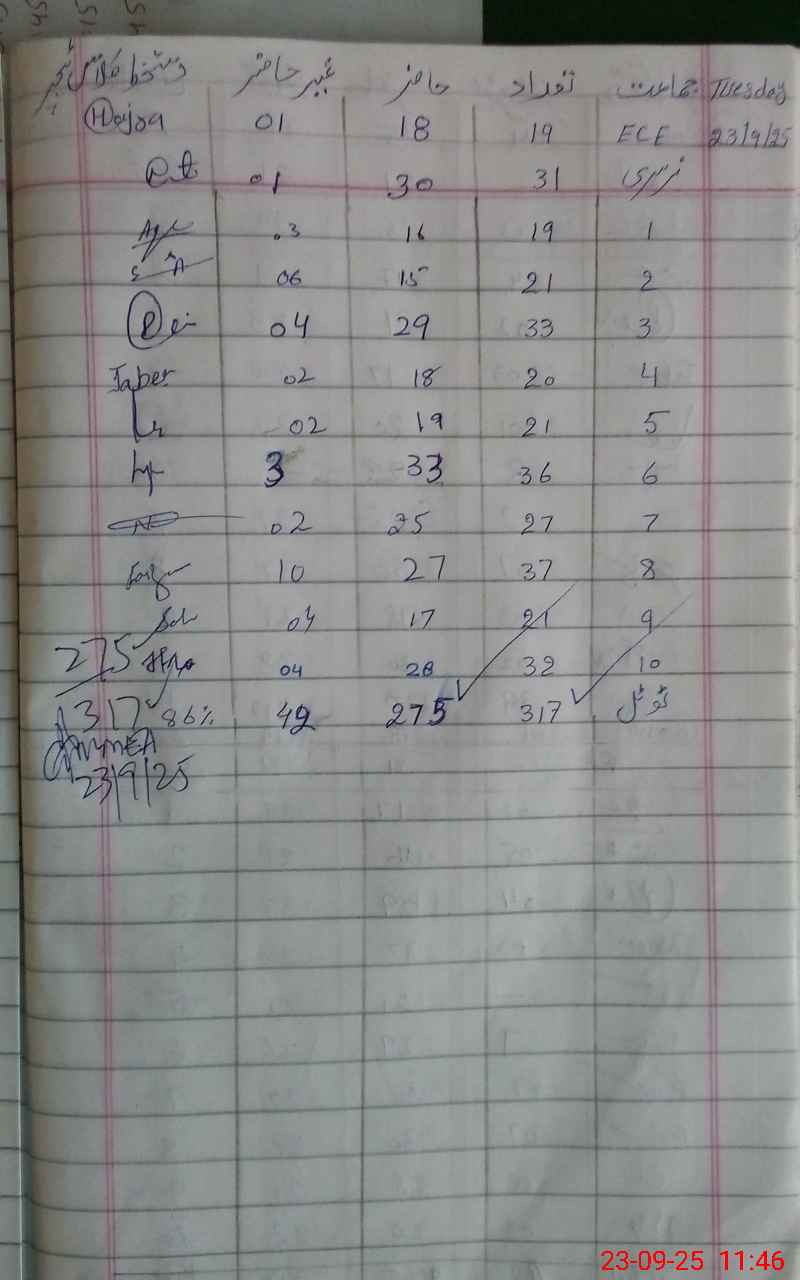 Tuesday جماعت تعداد حاضر غیر حاضر دستخط کلاس ٹیچر
23/9/25 ECE 19 18 01 Hajra
نرسری 31 30 01
1 19 16 03
2 21 15 06
3 33 29 04
4 20 18 02 Jaber
5 21 19 02
6 36 33 3
7 27 25 02
8 37 27 10
9 21 17 04
10 32 28 04 275
ٹوٹل 317 275 42 86% 317
23/9/25
23-09-25 11:46